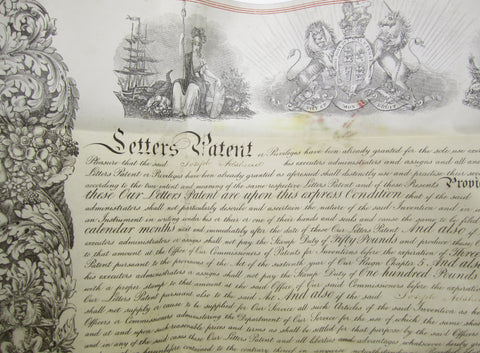 DIEU ET MON DROIT
Letters Patent or Privileges have been already granted for the sole use exer
Pleasure that the said Joseph his executors administrators and assigns and all an
Letters Patent or Privileges have been already granted as aforesaid shall distinctly use and practise their seve
according to the true intent and meaning of the same respective Letters Patent and of these Presents Provid
these Our Letters Patent are upon this express Condition that if the said
administrators shall not particularly describe and ascertain the nature of the said Invention and in
an Instrument in writing under his or their or one of their hands and seals and cause the same to be filed
calendar months next and immediately after the date of these Our Letters Patent And also if
executors administrators or assigns shall not pay the Stamp Duty of Fifty Pounds and produce these
to that amount at the Office of Our Commissioners of Patents for Inventions before the expiration of Three
Patent pursuant to the provisions of the Act of the sixteenth year of Our Reign Chapter 5 And also
his executors administrators or assigns shall not pay the Stamp Duty of One hundred Pounds
with a proper stamp to that amount at the said Office of Our said Commissioners before the expiration
Our Letters Patent pursuant also to the said Act And also if the said Joseph
shall not supply or cause to be supplied for Our Service all such Articles of the said Invention as he
Officers or Commissioners administering the Department of Our Service for the use of which the same shall
and at and upon such reasonable prices and terms as shall be settled for that purpose by the said Officers
and in any of the said cases these Our Letters Patent and all liberties and advantages whatsoever
hereinbefore contained to the contrary thereof in anywise notwithstanding